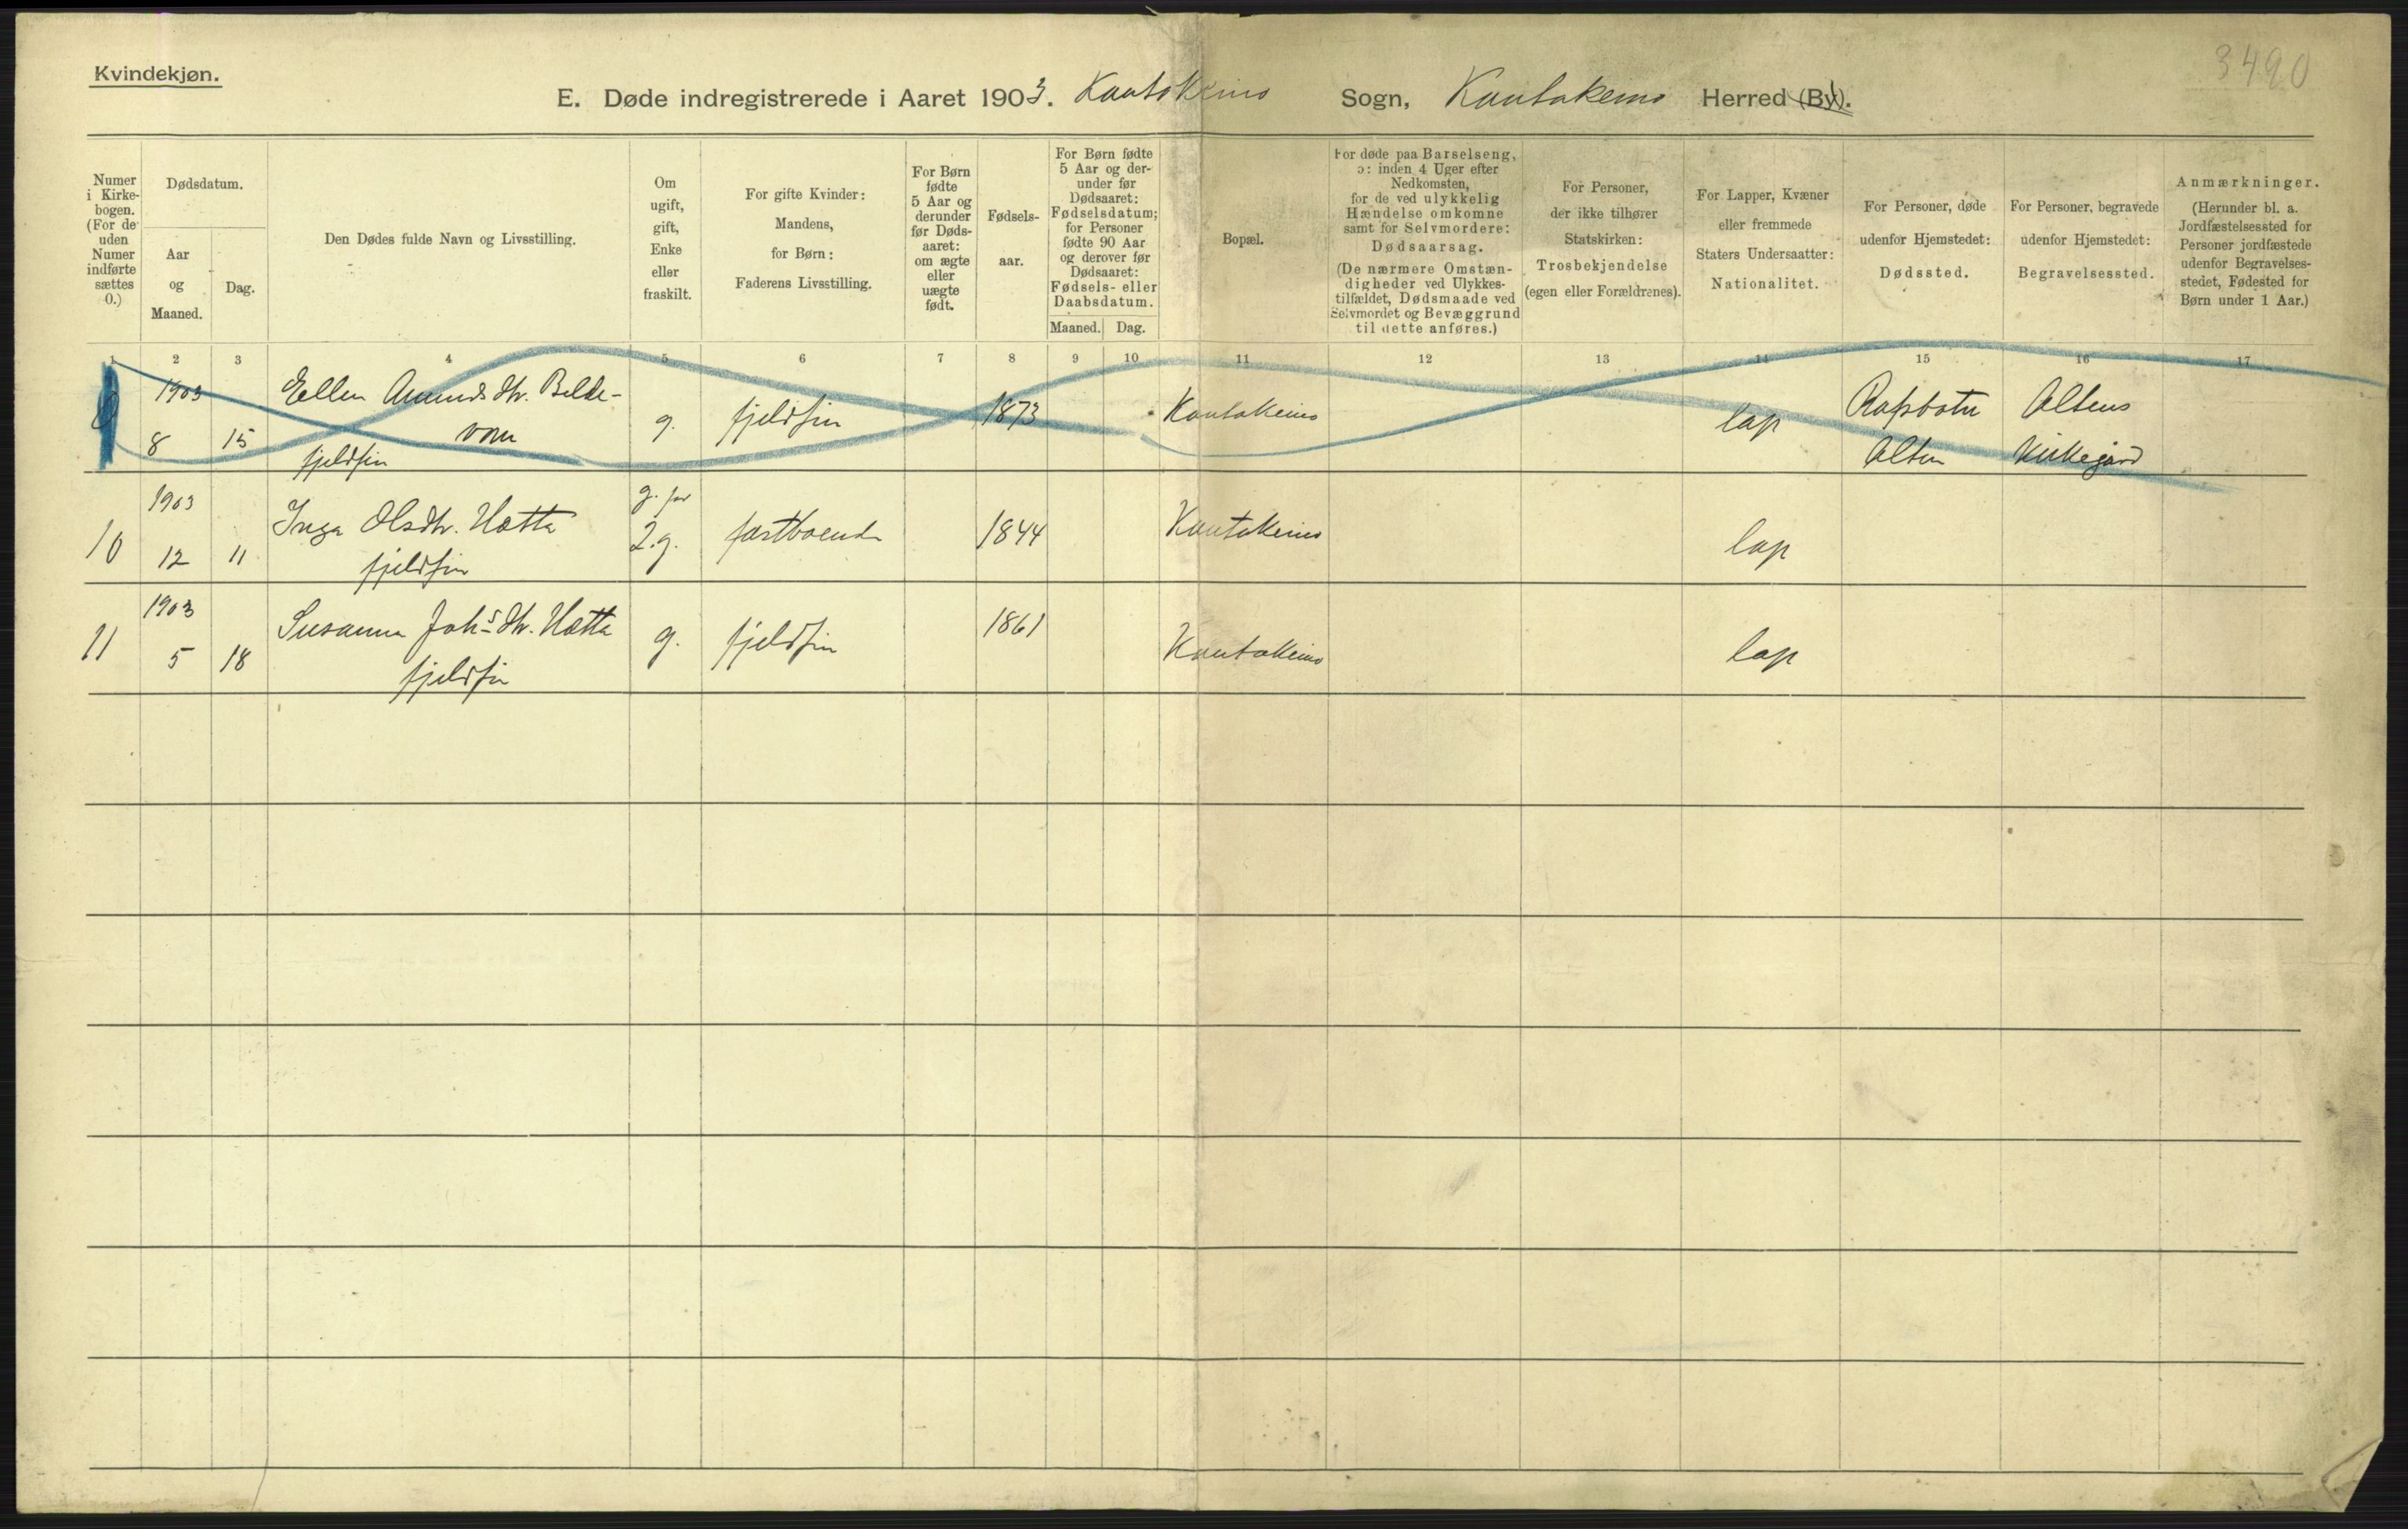 Kvindekjøn.
3490
E. Døde indregistrerede i Aaret 1903. Kautokeino Sogn, Kautokeino Herred (By).
Numer
i Kirke-
bogen.
(For de
uden
Numer
indførte
sættes
0.)
Dødsdatum.
Aar
og
Maaned.
Dag.
Den Dødes fulde Navn og Livsstilling.
Om
ugift,
gift,
Enke
eller
fraskilt.
For gifte Kvinder:
Mandens,
for Børn:
Faderens Livsstilling.
For Børn
fødte
5 Aar og
derunder
før Døds-
aaret:
om ægte
eller
uægte
født.
Fødsels-
aar.
For Børn fødte
5 Aar og der-
under før
Dødsaaret:
Fødselsdatum;
for Personer
fødte 90 Aar
og derover før
Dødsaaret:
Fødsels- eller
Daabsdatum.
Maaned. Dag.
Bopæl.
For døde paa Barselseng,
ɔ: inden 4 Uger efter
Nedkomsten,
for de ved ulykkelig
Hændelse omkomne
samt for Selvmordere:
Dødsaarsag.
(De nærmere Omstæn-
digheder ved Ulykkes-
tilfældet, Dødsmaade ved
Selvmordet og Bevæggrund
til dette anføres.)
For Personer,
der ikke tilhører
Statskirken:
Trosbekjendelse
(egen eller Forældrenes).
For Lapper, Kvæner
eller fremmede
Staters Undersaatter:
Nationalitet.
For Personer, døde
udenfor Hjemstedet:
Dødssted.
For Personer, begravede
udenfor Hjemstedet:
Begravelsessted.
Anmærkninger.
(Herunder bl. a.
Jordfæstelsessted for
Personer jordfæstede
udenfor Begravelses-
stedet, Fødested for
Børn under 1 Aar.)
1 2 3 4 5 6 7 8 9 10 11 12 13 14 15 16 17
1903 Ellen Amundsdtr. Belde- g. fjeldfin 1873 Kautokeino lap Rafsbotn Altens
8 15 vom Alten Kirkegård
fjeldfin
1903 g. for
10 Inga Olsdtr. Hætta 2.g. fastboende 1844 Kautokeino lap
12 11 fjeldfin
1903
11 Susanna Johsdtr. Hætta g. fjeldfin 1861 Kautokeino lap
5 18 fjeldfin